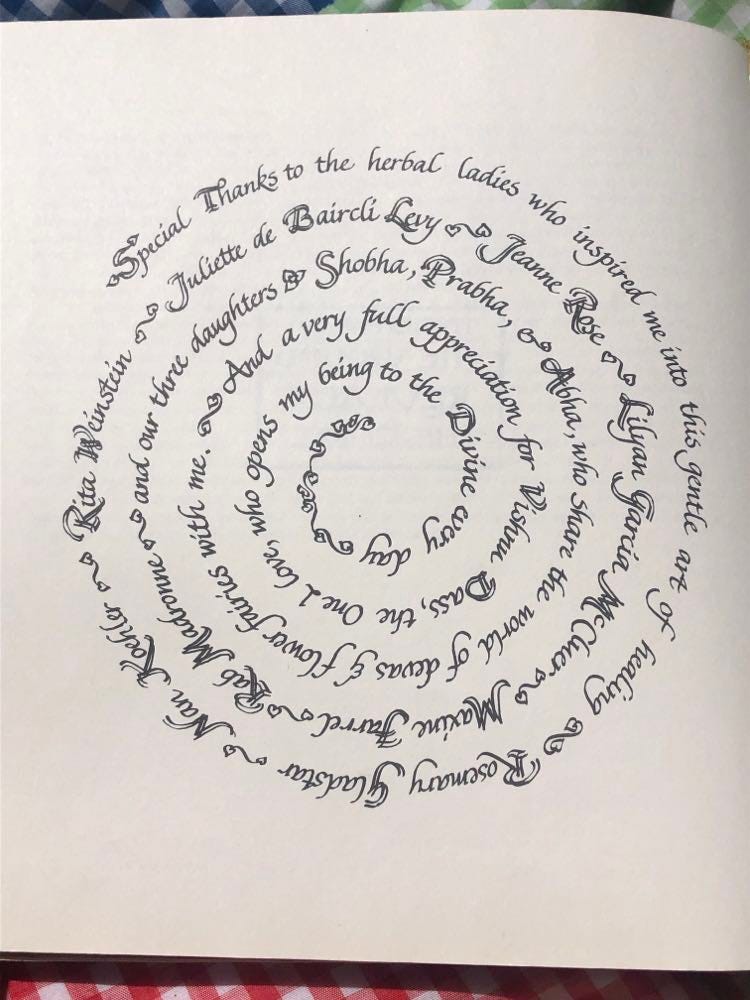 Special Thanks to the herbal ladies who inspired me into this gentle art of healing
Rosemary Gladstar
Nan Koehler
Rita Weinstein
Juliette de Baircli Levy
Jeanne Rose
Lilyan Garcia McCluer
Maxine Farrel
Rab Madrone
and our three daughters
Shobha, Prabha, & Abha, who share the world of devas & flower fairies with me.
And a very full appreciation for Vishnu Dass, the One I love, who opens my being to the Divine every day